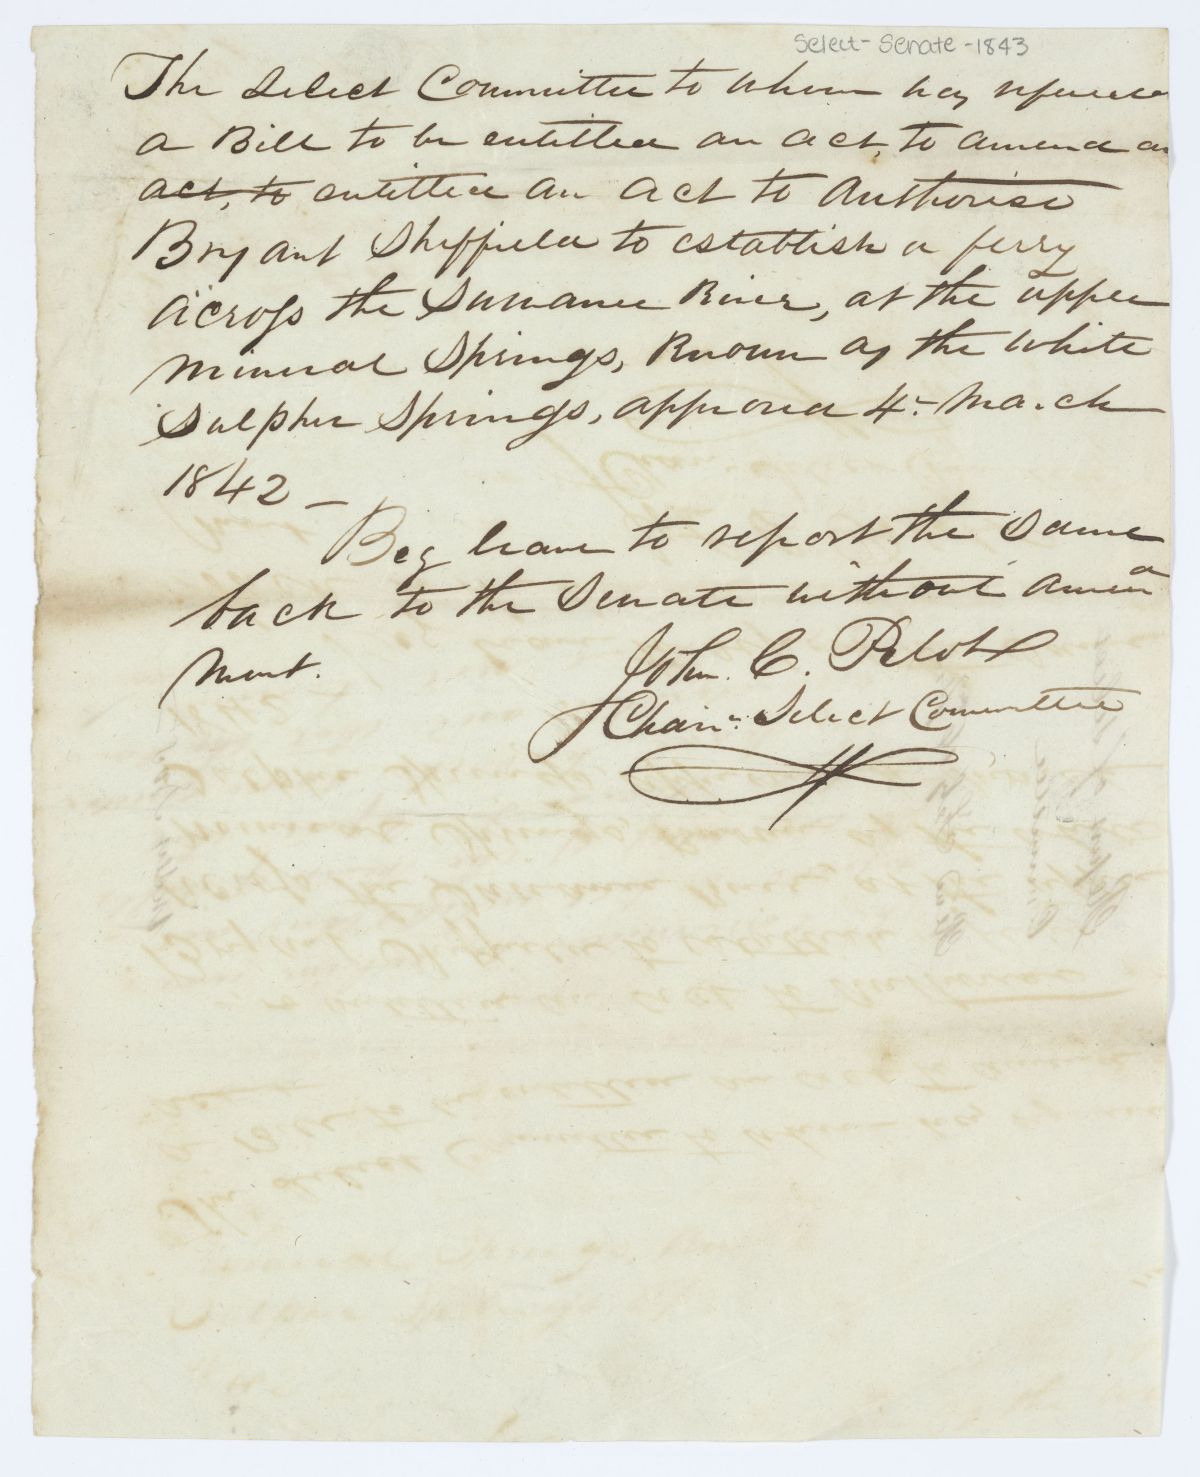 Select-Senate-1843
The Select Committee to whom was refered
a Bill to be entitled an act, to amend an
act, to entitled an act to Authorise
Bryant Sheffield to establish a ferry
across the Suwanee River, at the upper
mineral Springs, known as the White
Sulpher Springs, approved 4th March
1842 —
Beg leave to report the same
back to the Senate without amend
ment.
John. C. Pelot
Chairn. Select Committee